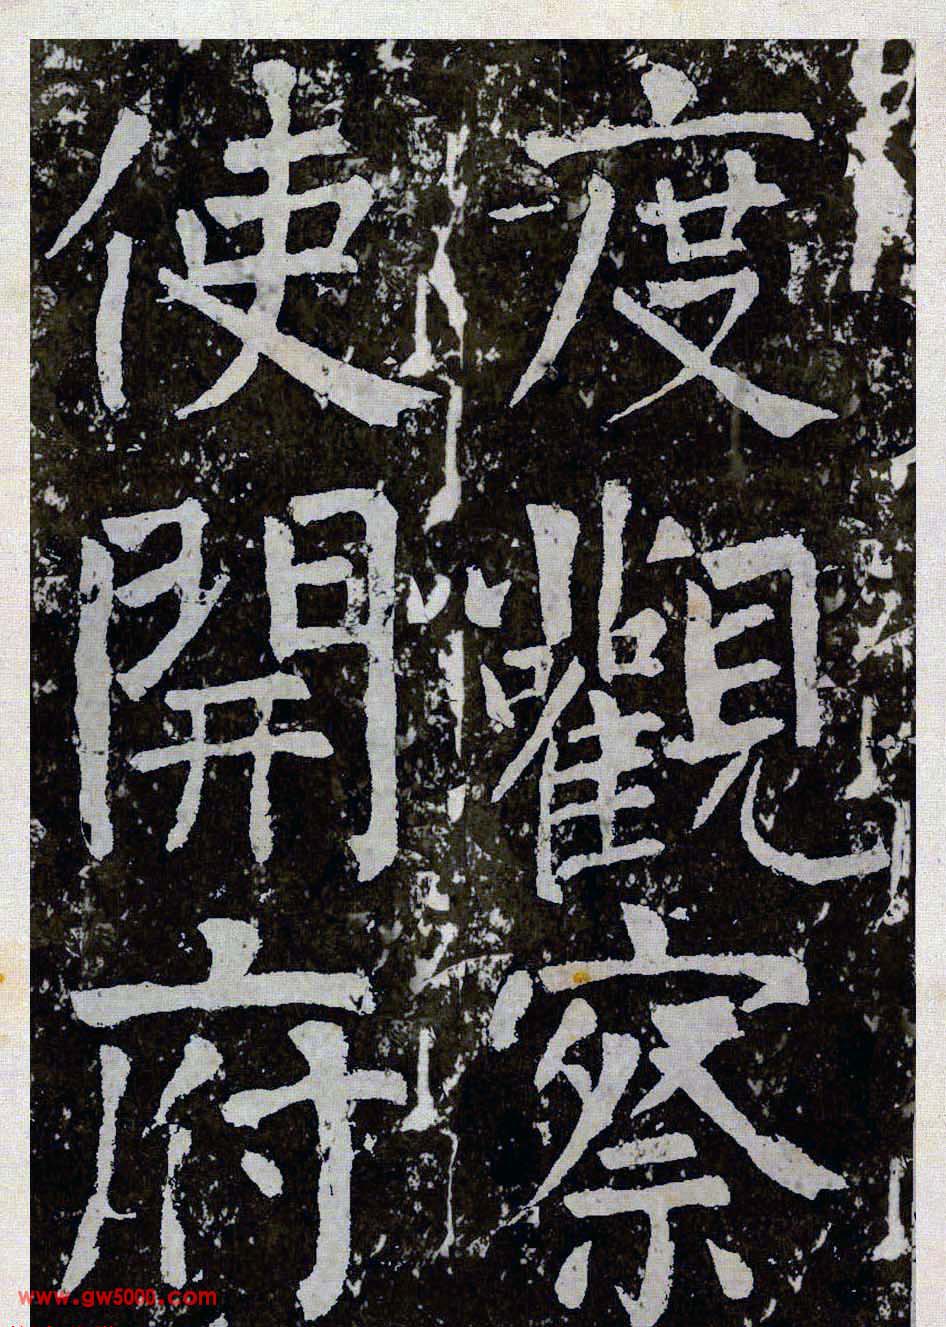 度觀察
使開府
www.gw5000.com